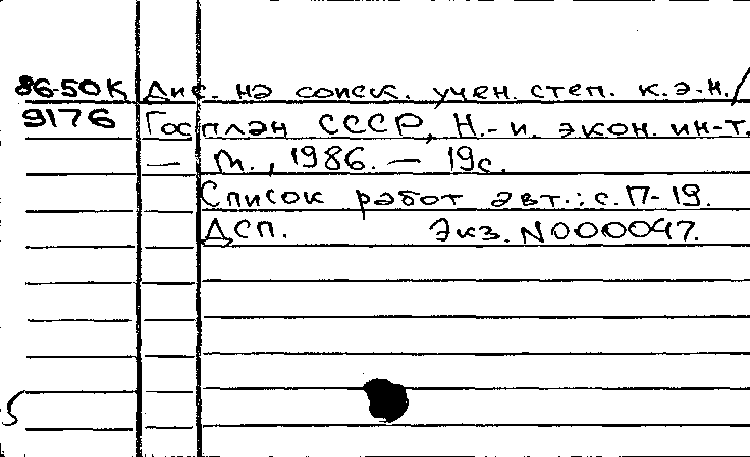 86-50К Дис. на соиск. учен. степ. к.э.н./
9176 Госплан СССР, Н.-и. экон. ин-т.
— М., 1986. — 19с.
Список работ авт.: с. 17-19.
ДСП. Экз. N000047.